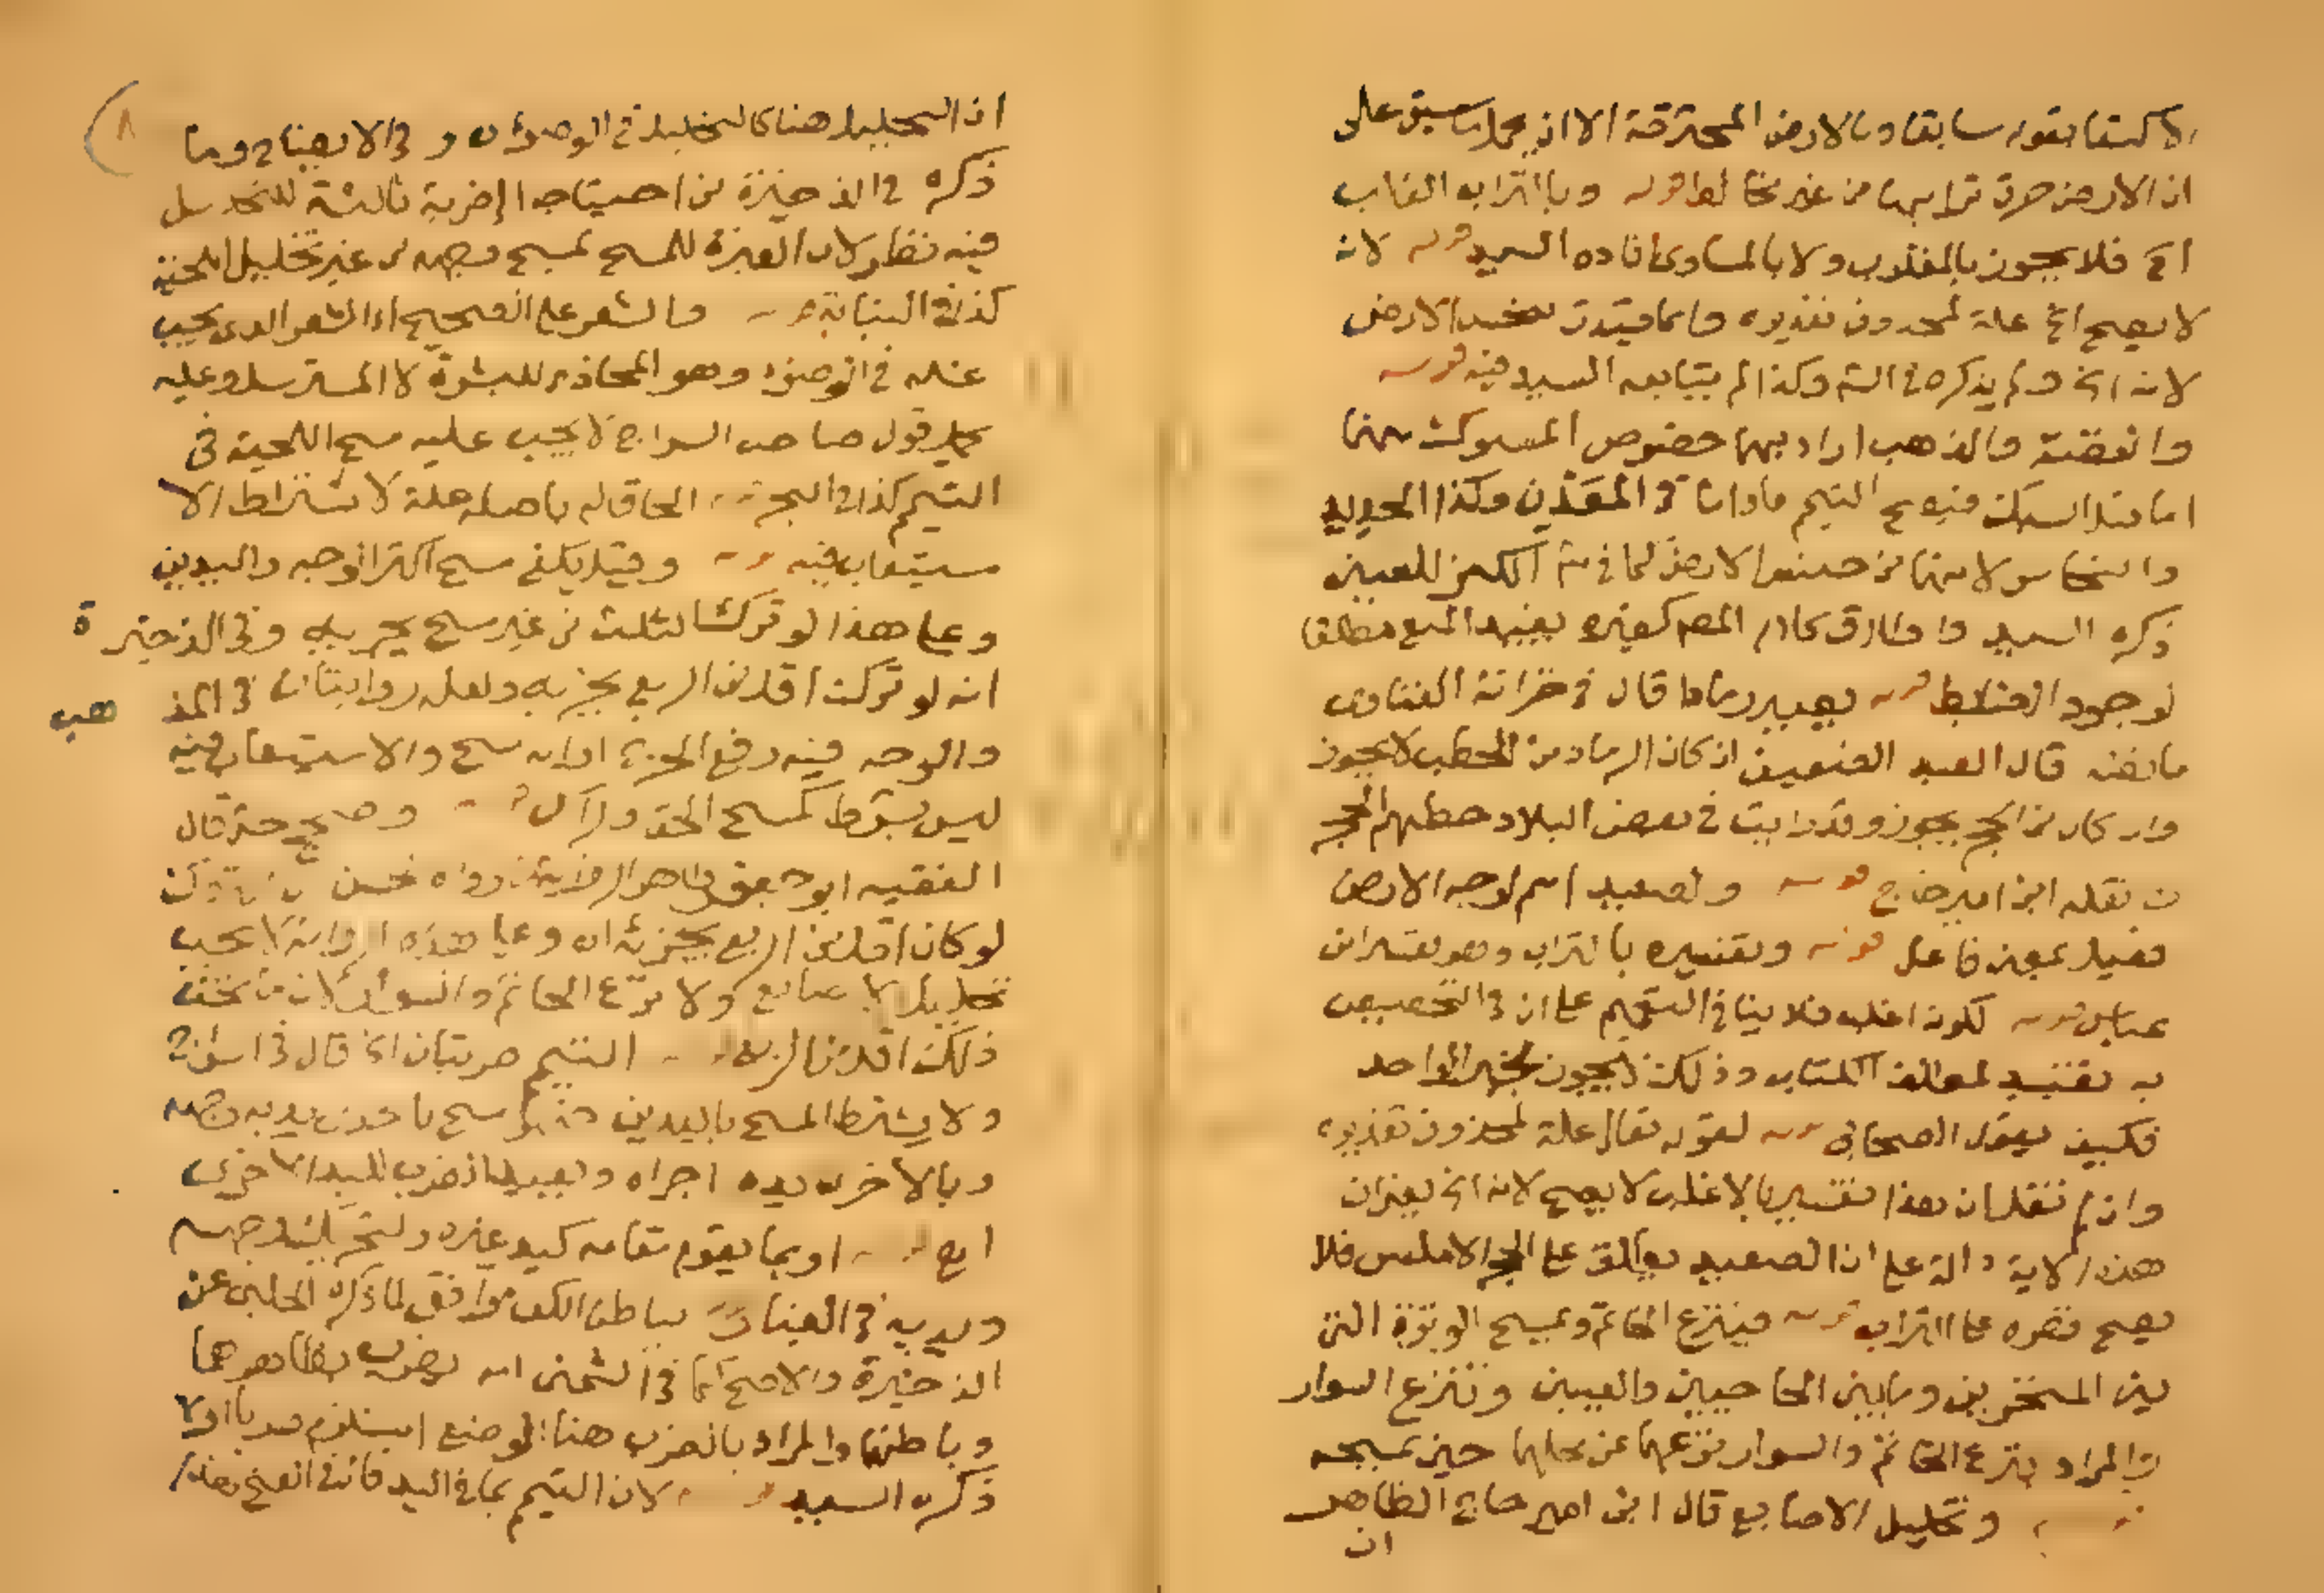 الاكتفا بقوله سابقا وبالارض المحترقة الا ان يحمل ما سبق على
ان الارض حرق ترابها من غير مخالط قوله وبالتراب الغالب
الخ فلا يجوز بالمغلوب ولا بالمساوى افاده السيد قوله لانه
لا يصح الخ علة لمحذوف تقديره وانما قيدت بمخبر الارض
لانه الخ ولم يذكره في الشرح وكذا لم يتابعه السيد فيه قوله
والفضة والذهب اراد بهما خصوص المسبوك منهما
اما قبل السبك فيصح التيمم ماداما في المعدن وكذا الحديد
والنحاس لانهما من جنس الارض لما في شرح الكنز للعينى
ذكره السيد واطلاق كلام المص كغيره يفيد المنع مطلقا
لوجود الضابط قوله يصير رمادا قال في خزانة الفتاوى
ما نصه قال العبد الضعيف ان كان الرماد من الحطب لا يجوز
وان كان من الحجر يجوز وقد رايت في بعض البلاد حطبهم الحجر
نقله ابن امير حاج قوله والصعيد اسم لوجه الارض
فعيل بمعنى فاعل قوله وتفسيره بالتراب وهو تفسير ابن
عباس قوله لكونه اغلب فلا ينافى التعميم على ان في التخصيص
به تقييد لمطلق الكتاب وذلك لا يجوز بخبر الواحد
فكيف بقول الصحابى قوله لقوله تعالى علة لمحذوف تقديره
وان لم نقل ان هذا تفسير بالاغلب لا يصح لانه الخ يعنى ان
هذه الاية دالة على ان الصعيد يطلق على الحجر الاملس فلا
يصح قصره على التراب قوله فينزع الخاتم ويمسح الوترة التى
بين المنخرين وما بين الحاجبين والعينين وتنزع السوار
والمراد بنزع الخاتم والسوار نزعهما عن محلهما حين يمسحه
وتخليل الاصابع قال ابن امير حاج الظاهر
ان
ان التخليل هنا كالتخليل في الوضوء وفى الايضاح وما
ذكره في الذخيرة من احتياجه الى ضربة ثالثة للتخليل
فيه نظر لان العبرة للمسح يمسح وجهه من غير تخليل اللحية
كذا في البناية قوله والشعر على الصحيح اى الشعر الذى يجب
غسله في الوضوء وهو المحاذى للبشرة لا المسترسل وعليه
يحمل قول صاحب السراج لا يجب عليه مسح اللحية في
التيمم كذا في البحر قوله الحاقا له باصله علة لاشتراط الا
ستيعاب فيه قوله وقيل يكفى مسح اكثر الوجه واليدين
وعلى هذا لو ترك الثلث من غير مسح يجزيه وفى الذخيرة
انه لو ترك اقل من الربع يجزيه ولعلها روايتان في المذ هب
والوجه فيه رفع الحرج اذ انه مسح والاستيعاب فيه
ليس بشرط كمسح الخف والراس قوله وصحح حتى قال
الفقيه ابو جعفر ظاهر الرواية رواه الحسن
لو كان اقل من الربع يجزئه اه وعلى هذه الرواية لا يجب
تخليل الاصابع ولا نزع الخاتم والسوار لان ما تحت
ذلك اقل من الربع قوله التيمم ضربتان الخ قال في
ولا يشترط المسح باليدين حتى لو مسح باحدى يديه وجهه
وبالاخرى يده اجزاه ويعيد الضرب لليد الاخرى
اهـ قوله او بما يقوم مقامه كيد غيره
ويديه في الضرب بباطن الكف موافق لما ذكره الحلبى عن
الذخيرة والاصح كما في الشمنى انه يضرب بظاهرهما
وباطنهما والمراد بالضرب هنا الوضع استلزم ضربا اولا
ذكره السيد قوله لان التيمم بما في اليد قال في الفتح
٨